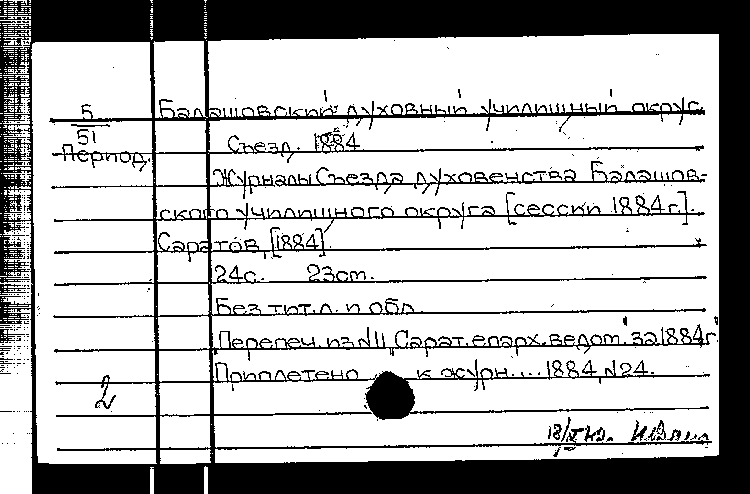 Б
51
Период.
Балашовский духовный училищный округ.
Съезд. 1884
Журналы Съезда духовенства Балашов-
ского училищного округа [сессии 1884 г.].
Саратов, [1884].
24с. 23cm.
Без тит. л. и обл.
Перепеч. из №11 „Сарат. епарх. ведом." за 1884 г.
Приплетено к журн.... 1884, №24.
2